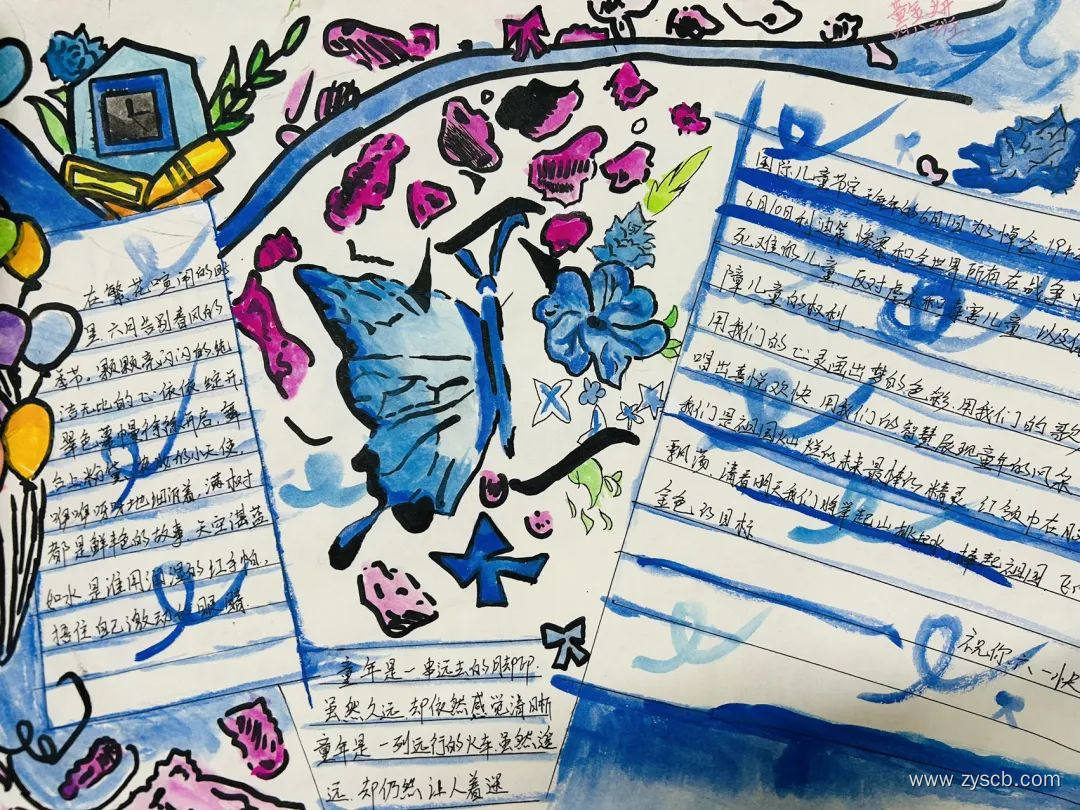 在繁花喧闹的时
里.六月告别春风的
季节。颗颗亮闪闪的纯
洁无比的心依依绽开
翠色幕慢徐徐开启,舞
台上粉
咿咿呀呀地细诉着,满树
都是鲜艳的故事.天空湛蓝
如水.是谁用润湿的红手帕,
捂住自己激动的眼睛.
童年是一串远去的脚印.
虽然久远.却依然感觉清晰
童年是一列远行的火车虽然遥
远.却仍然让人着迷
国际儿童节定于每年的6月1日.为了悼念1942
6月10日利迪策惨案和全世界所有在战争中
死难的儿童.反对虐杀和毒害儿童,以及保
障儿童的权利
用我们的心灵画出梦的色彩.用我们的歌
唱出喜悦欢快.用我们的智慧展现童年的风采.
我们是祖国灿烂的未来最棒的精灵.红领巾在胸
飘荡.请看明天我们将举起山挑起水.捧起祖国.飞
金色的目标
祝你六一快
www.zyscb.com